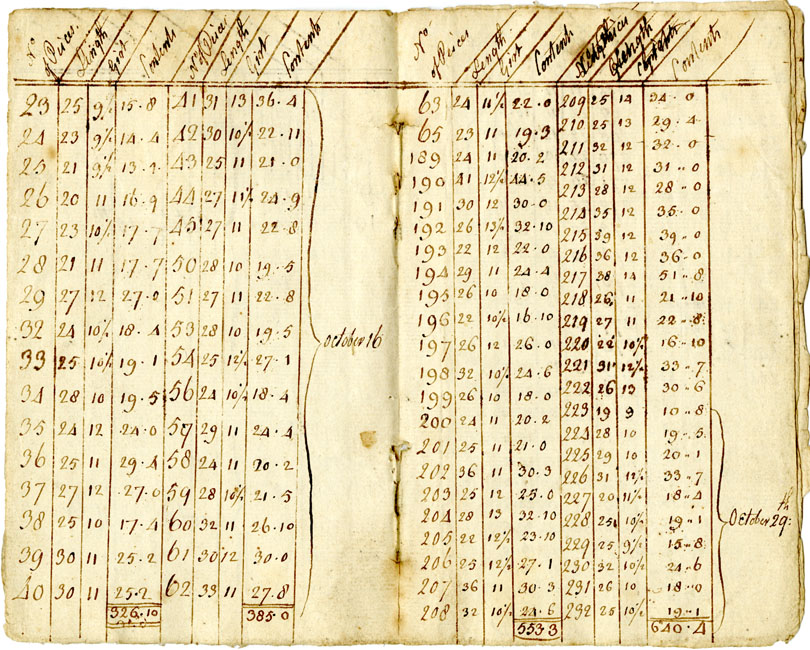 No of Pieces Length Girt Contents No of Pieces Length Girt Contents
23 25 9½ 15.8 41 31 13 36.4
24 23 9½ 14.4 42 30 10½ 22.11
25 21 9½ 13.2 43 25 11 21.0
26 20 11 16.9 44 27 11½ 24.9
27 23 10½ 17.7 45 27 11 22.8
28 21 11 17.7 50 28 10 19.5
29 27 12 27.0 51 27 11 22.8
32 24 10½ 18.4 53 28 10 19.5
October 16
33 25 10½ 19.1 54 25 12½ 27.1
34 28 10 19.5 56 24 10½ 18.4
35 24 12 24.0 57 29 11 24.4
36 25 11 29.4 58 24 11 20.2
37 27 12 27.0 59 28 10½ 21.5
38 25 10 17.4 60 32 11 26.10
39 30 11 25.2 61 30 12 30.0
40 30 11 25.2 62 33 11 27.8
326.10 385.0
No of Pieces Length Girt Contents
63 24 11½ 22.0
65 23 11 19.3
189 24 11 20.2
190 41 12½ 44.5
191 30 12 30.0
192 26 13½ 32.10
193 22 12 22.0
194 29 11 24.4
195 26 10 18.0
196 22 10½ 16.10
197 26 12 26.0
198 32 10½ 24.6
199 26 10 18.0
200 24 11 20.2
201 25 11 21.0
202 36 11 30.3
203 25 12 25.0
204 28 13 32.10
205 22 12½ 23.10
206 25 12½ 27.1
207 36 11 30.3
208 32 10½ 24.6
553.3
Length Contents
209 25 14 34..0
210 25 13 29..4
211 32 12 32..0
212 31 12 31..0
213 28 12 28..0
214 35 12 35..0
215 39 12 39..0
216 36 12 36..0
217 38 14 51..8
218 26 11 21..10
219 27 11 22..8
220 22 10½ 16..10
221 31 12½ 33..7
222 26 13 30..6
223 19 9 10..8
224 28 10 19..5
225 29 10 20..1
226 31 12½ 33..7
227 20 11½ 18..4
228 25 10½ 19..1
229 25 9½ 15..8
230 32 10½ 24..6
231 26 10 18..0
232 25 10½ 19..1
640.4
October 29th: